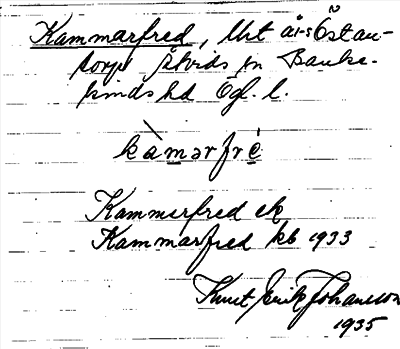 Kammarfred, lht å i s Östan-
torps Åtvids sn Banke-
kinds hd Ögl. l.
kàmərfré
Kammerfred ek
Kammarfred kb 1933
Knut Erik Johansson
1935